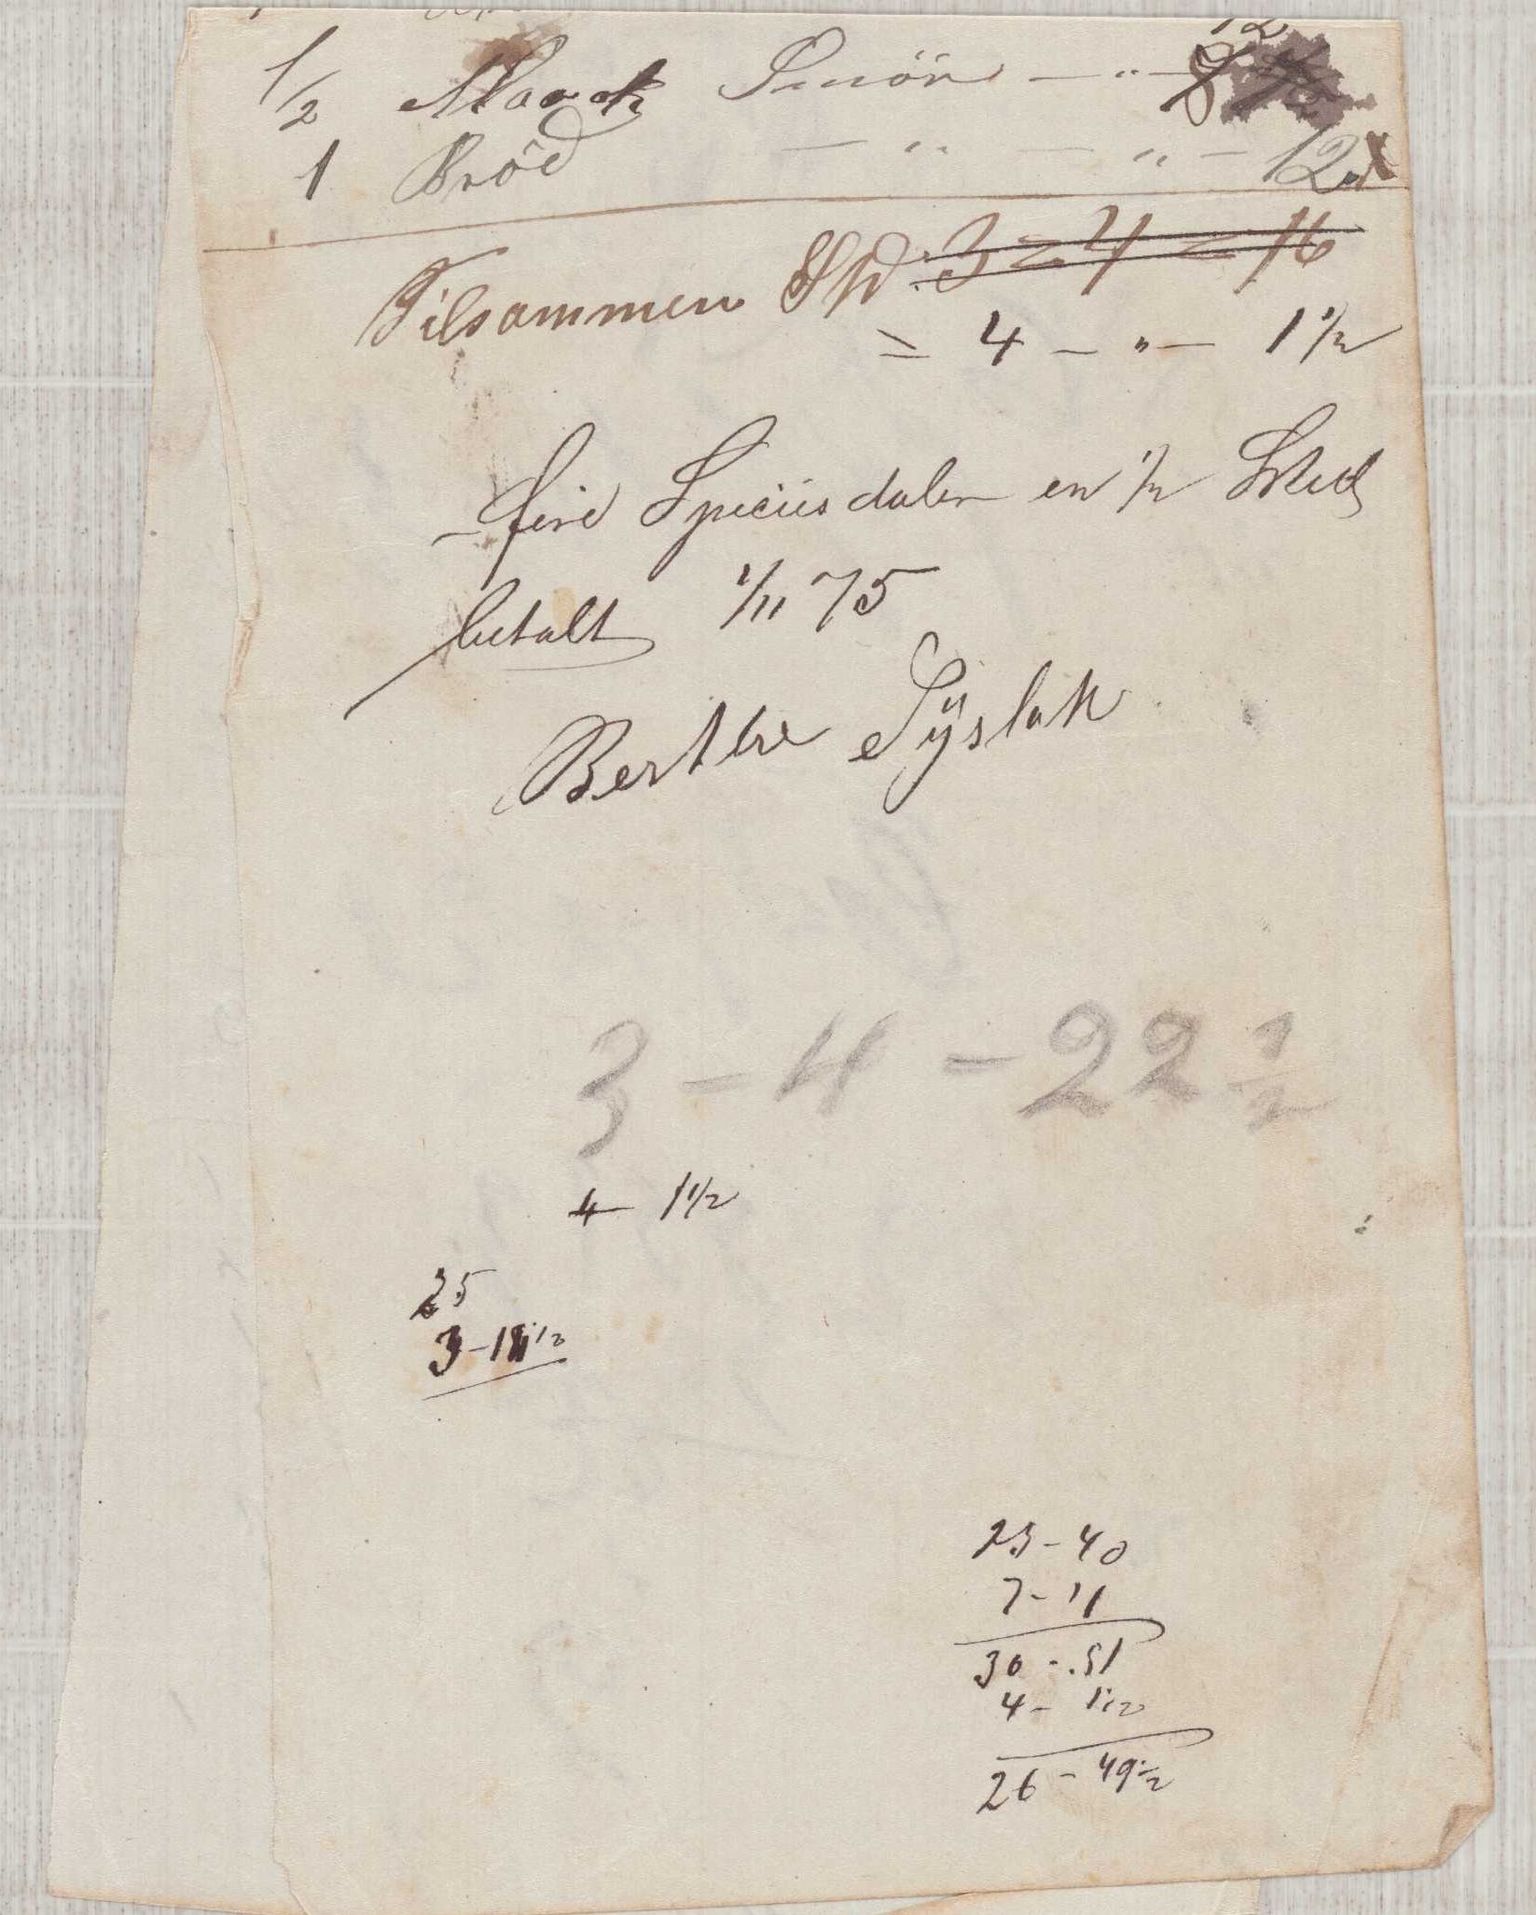 1/2 Mark Smör — " — 8 12
1 Bröd — " — " — 12
Tilsammen Spd. 3 = 4 = 16
= 4 — " — 1 1/2
— fire Speciesdaler en 1/2 Sk
betalt 1/11 75
Berthe Sÿslak
3 — 4 — 22 1/2
4 — 1 1/2
25
3 — 1 1/2
23 — 40
7 — 11
30 — 51
4 — 1 1/2
26 — 49 1/2